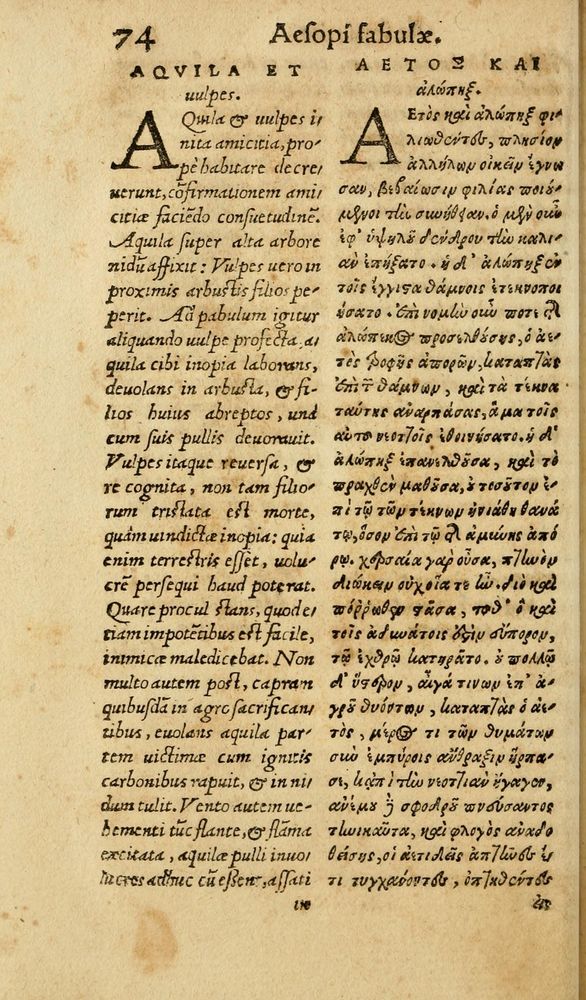 74 Aesopi fabulæ.
AQVILA ET
uulpes.
AQuila & uulpes i/
nita amicitia, pro/
pè habitare decre/
uerunt, cōfirmationem ami/
citiæ faciēdo consuetudinē.
Aquila super alta arbore
nidū affixit: Vulpes uero in
proximis arbustis filios pe/
perit. Ad pabulum igitur
aliquando uulpe profecta, a/
quila cibi inopia laborans,
deuolans in arbusta, & fi/
lios huius abreptos, unà
cum suis pullis deuorauit.
Vulpes itaque reuersa, &
re cognita, non tam filio/
rum tristata est morte,
quàm uindictæ inopia: quia
enim terrestris esset, uolu/
crē persequi haud poterat.
Quare procul stans, quod e/
tiam impotētibus est facile,
inimicæ maledicebat. Non
multo autem post, capram
quibusdā in agro sacrifican/
tibus, euolans aquila par/
tem uictimæ cum ignitis
carbonibus rapuit, & in ni/
dum tulit. Vento autem ue/
hementi tūc flante, & flāma
excitata, aquilæ pulli inuo/
lucres adhuc cū essent, assati
in
ΑΕΤΟΣ ΚΑΙ
ἀλώπηξ.
ΑΕτὸς καὶ ἀλώπηξ φι/
λιωθέντες, πλησίον
ἀλλήλων οἰκεῖν ἔγνω
σαν, βεβαίωσιν φιλίας ποιού/
μενοι τὴν συνήθειαν. ὁ μὲν οὖν
ἐφ' ὑψηλοῦ δένδρου τὴν καλι/
ὰν ἐπήξατο. ἡ δ' ἀλώπηξ ἐν
τοῖς ἔγγιστα θάμνοις ἐτεκνοποι
ήσατο. ἐπὶ νομὴν οὖν ποτε τῆς
ἀλώπεκος προελθούσης, ὁ ἀε/
τὸς τροφῆς ἀπορῶν, καταπτὰς
ἐπὶ τῶν θάμνων, καὶ τὰ τέκνα
ταύτης ἀναρπάσας, ἅμα τοῖς
αὑτοῦ νεοττοῖς ἐθοινήσατο. ἡ δ'
ἀλώπηξ ἐπανελθοῦσα, καὶ τὸ
πραχθὲν μαθοῦσα, οὐ τοσοῦτον ἐ/
πὶ τῷ τῶν τέκνων ἠνιάθη θανά
τῳ, ὅσον ἐπὶ τῷ τῆς ἀμύνης ἀπό
ρῳ. χερσαία γὰρ οὖσα, πτηνὸν
διώκειν οὐχ οἵα τε ἦν. διὸ καὶ
πόρρωθεν στᾶσα, τοῦθ' ὃ καὶ
τοῖς ἀδυνάτοις ἐστὶν εὔπορον,
τῷ ἐχθρῷ κατηρᾶτο. οὐ πολλῷ
δ' ὕστερον, αἶγά τινων ἐπ' ἀ/
γροῦ θυόντων, καταπτὰς ὁ ἀε/
τὸς, μέρος τι τῶν θυμάτων
σὺν ἐμπύροις ἄνθραξιν ἥρπα/
σε, κἀπὶ τὴν νεοττιὰν ἤγαγεν,
ἀνέμου δὲ σφοδροῦ πνεύσαντος
τηνικαῦτα, καὶ φλογὸς ἀναδο
θείσης, οἱ ἀετιδεῖς ἀπτῆνες ἔ/
τι τυγχάνοντες, ὀπτηθέντες